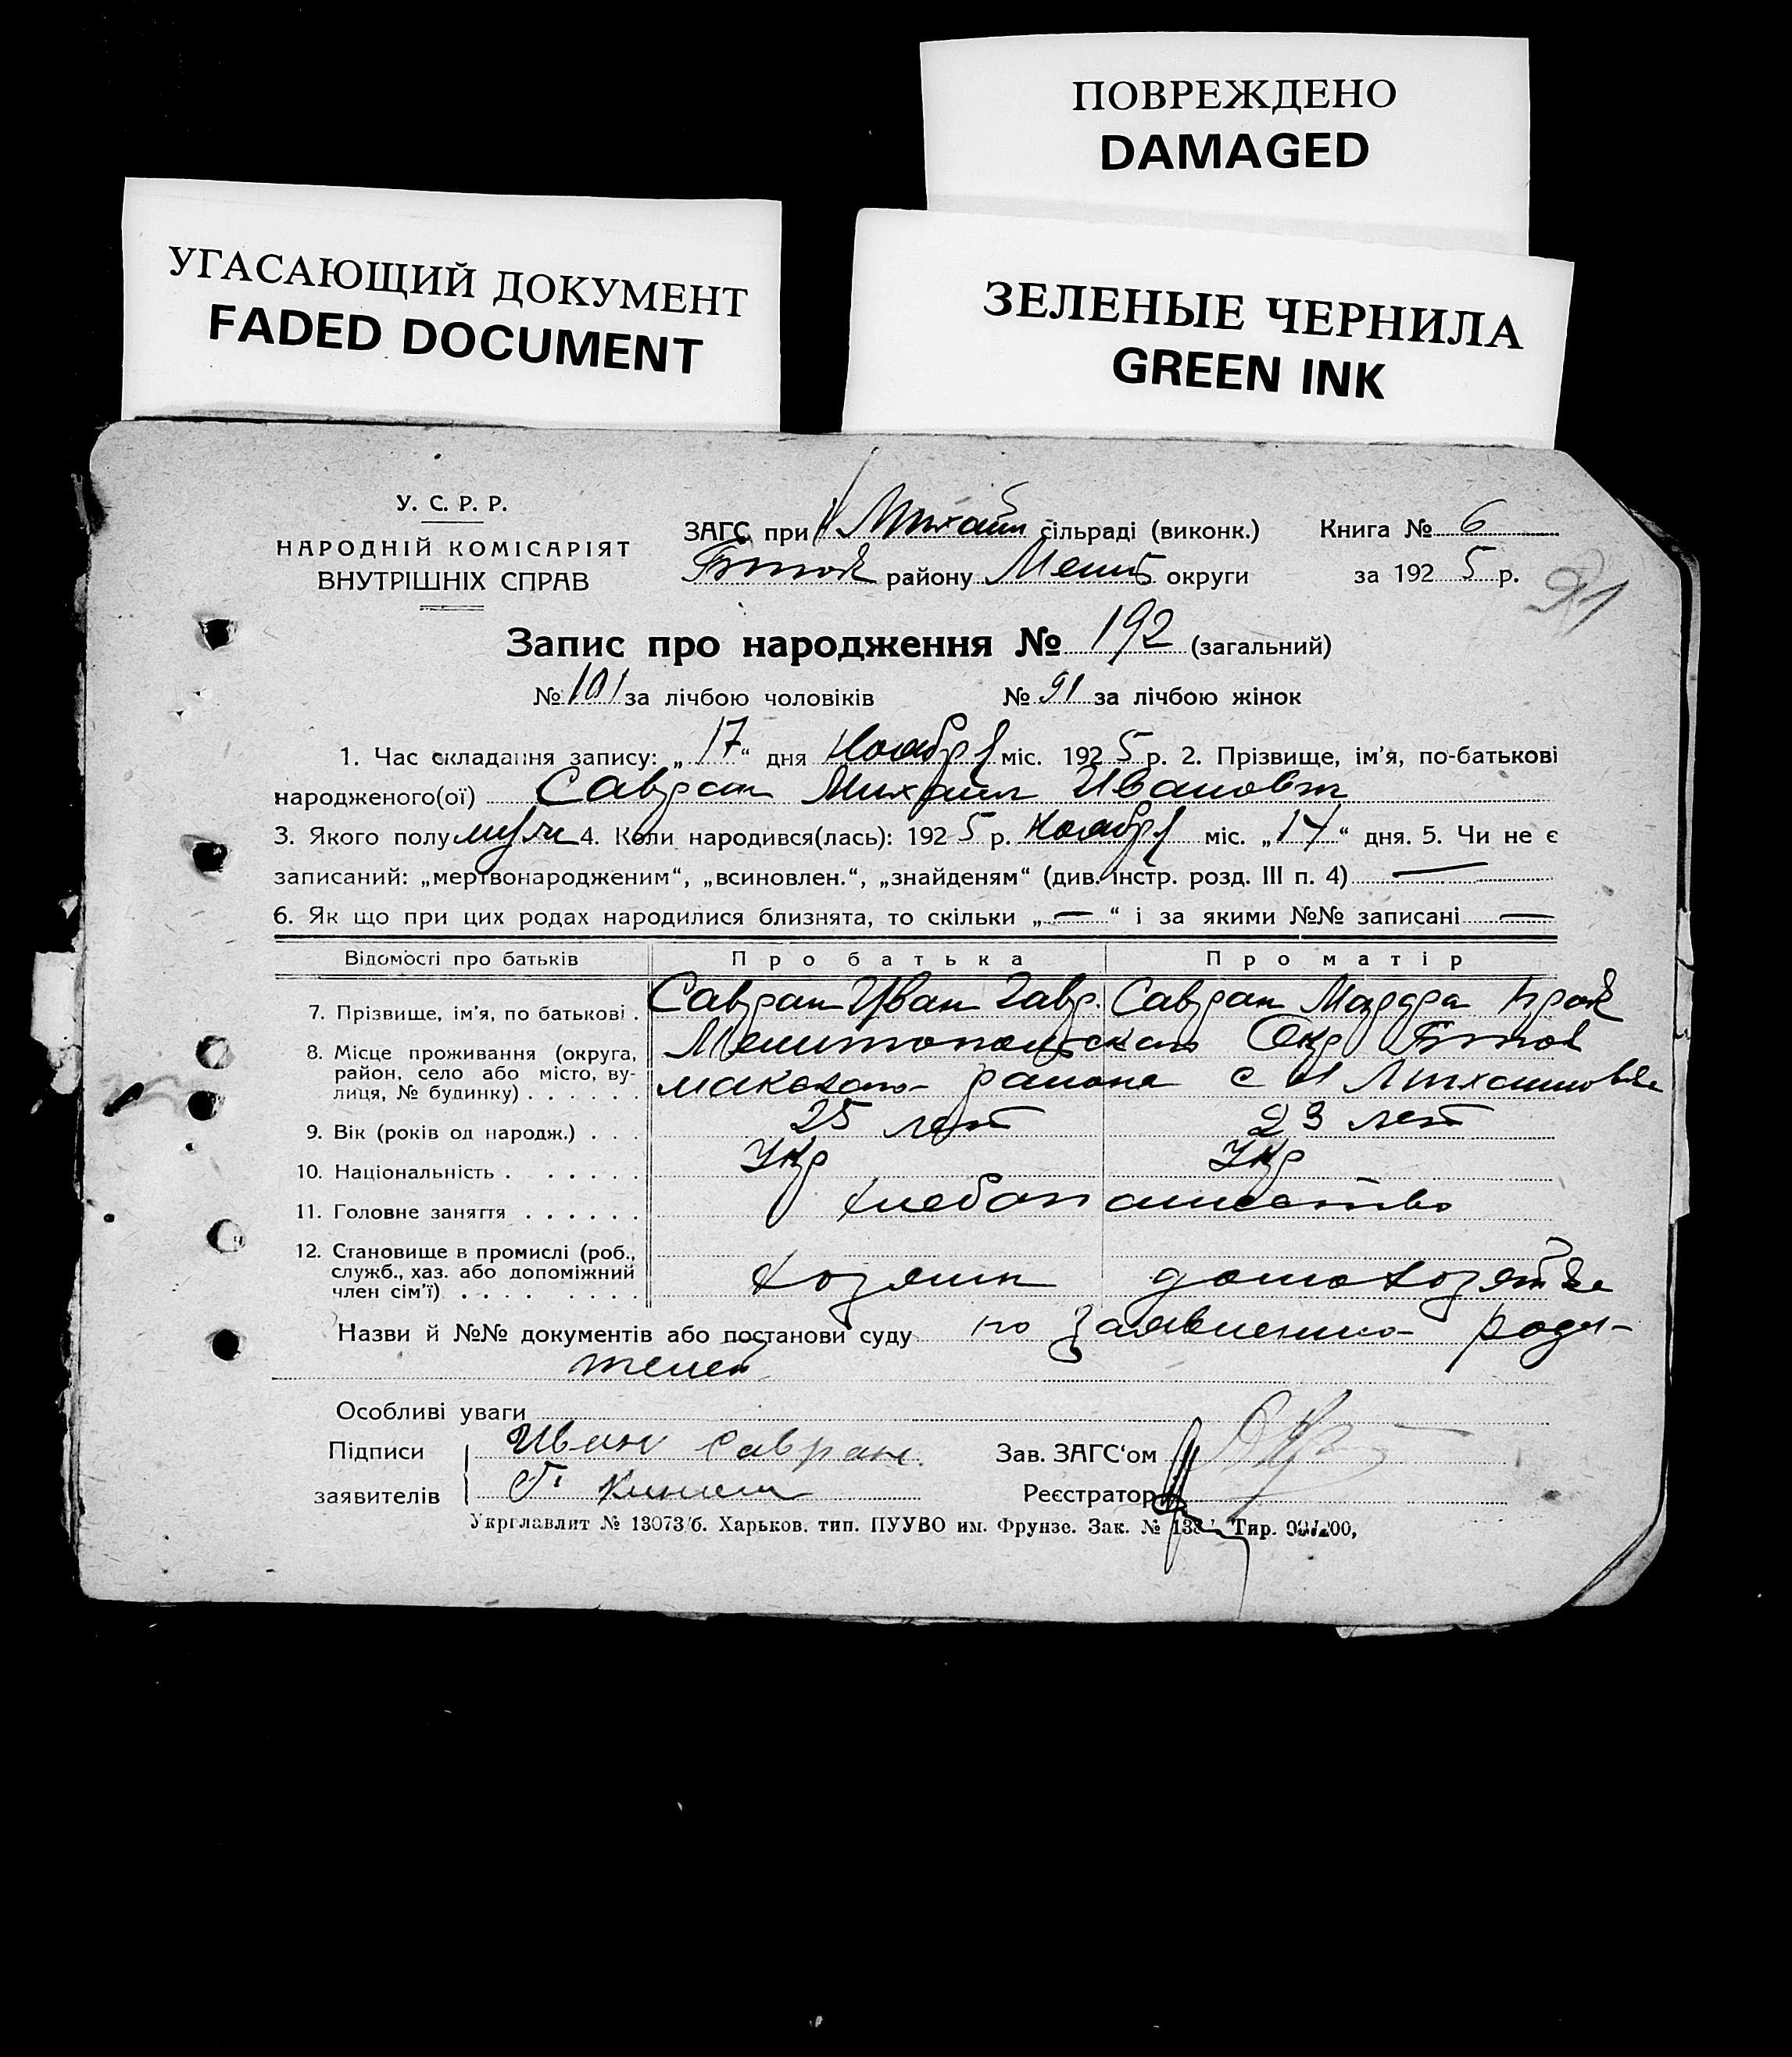 ПОВРЕЖДЕНО
DAMAGED
УГАСАЮЩИЙ ДОКУМЕНТ
FADED DOCUMENT
ЗЕЛЕНЫЕ ЧЕРНИЛА
GREEN INK
У. С. Р. Р.
НАРОДНІЙ КОМІСАРІЯТ
ВНУТРІШНІХ СПРАВ
ЗАГС при сільраді (виконк.) Книга № 6
району Мелит округи за 1925 р.
91
Запис про народження № 192 (загальний)
№ 101 за лічбою чоловіків № 91 за лічбою жінок
1. Час складання запису: „17“ дня Ноября міс. 1925 р. 2. Прізвище, ім'я, по-батькові
народженого(ої) Савран Михаил Иванович
3. Якого полу муж 4. Коли народився(лась): 1925 р. Ноября міс. „14“ дня. 5. Чи не є
записаний: „мертвонародженим“, „всиновлен.“, „знайденям“ (див. інстр. розд. III п. 4) —
6. Як що при цих родах народилися близнята, то скільки „—“ і за якими №№ записані —
Відомості про батьків Про батька Про матір
7. Прізвище, ім'я, по батькові . Савран Иван Гавр. Савран
8. Місце проживання (округа, район, село або місто, вулиця, № будинку) . . . . . . Мелитопольская Окр
района с Н Михайловка
9. Вік (років од народж.) . . . 25 лет 23 лет
10. Національність . . . . . . Укр Укр
11. Головне заняття . . . . . . хлебопашество
12. Становище в промислі (роб., служб., хаз. або допоміжний член сім'ї) . . . . . . . . хозяин домохозяйка
Назви й №№ документів або постанови суду по заявлению роди-
телей
Особливі уваги
Підписи Иван Савран. Зав. ЗАГС'ом
заявителів Реєстратор
Укрглавлит № 13073/б. Харьков. тип. ПУУВО им. Фрунзе. Зак. № Тир.